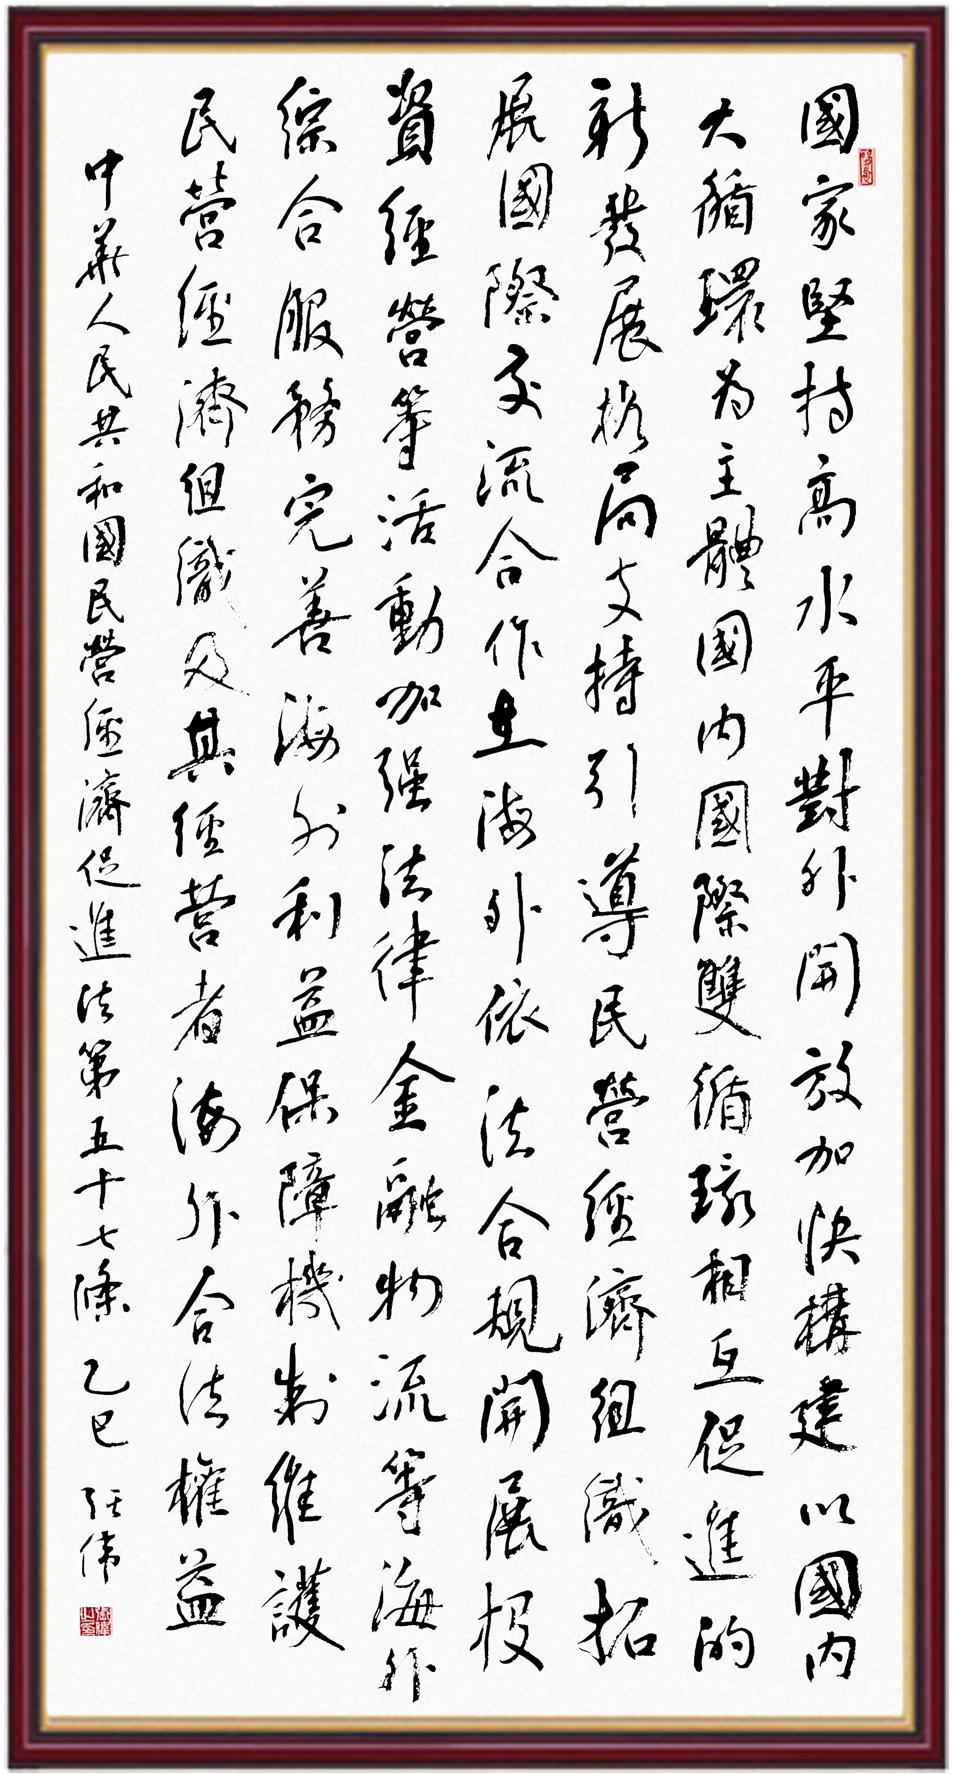 國家堅持高水平對外開放加快構建以國內
大循環為主體國內國際雙循環相互促進的
新發展格局支持引導民營經濟組織拓
展國際交流合作在海外依法合規開展投
資經營等活動加强法律金融物流等海外
綜合服務完善海外利益保障機制維護
民營經濟組織及其經營者海外合法權益
中華人民共和國民營經濟促進法第五十七條 乙巳 張偉